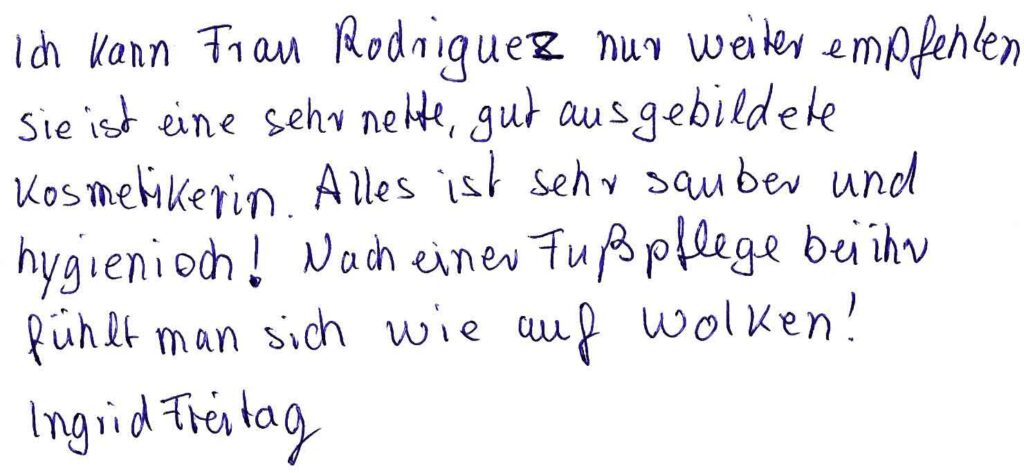 Ich kann Frau Rodriguez nur weiter empfehlen
sie ist eine sehr nette, gut ausgebildete
Kosmetikerin. Alles ist sehr sauber und
hygienisch! Nach einer Fußpflege bei ihr
fühlt man sich wie auf Wolken!
Ingrid Freitag